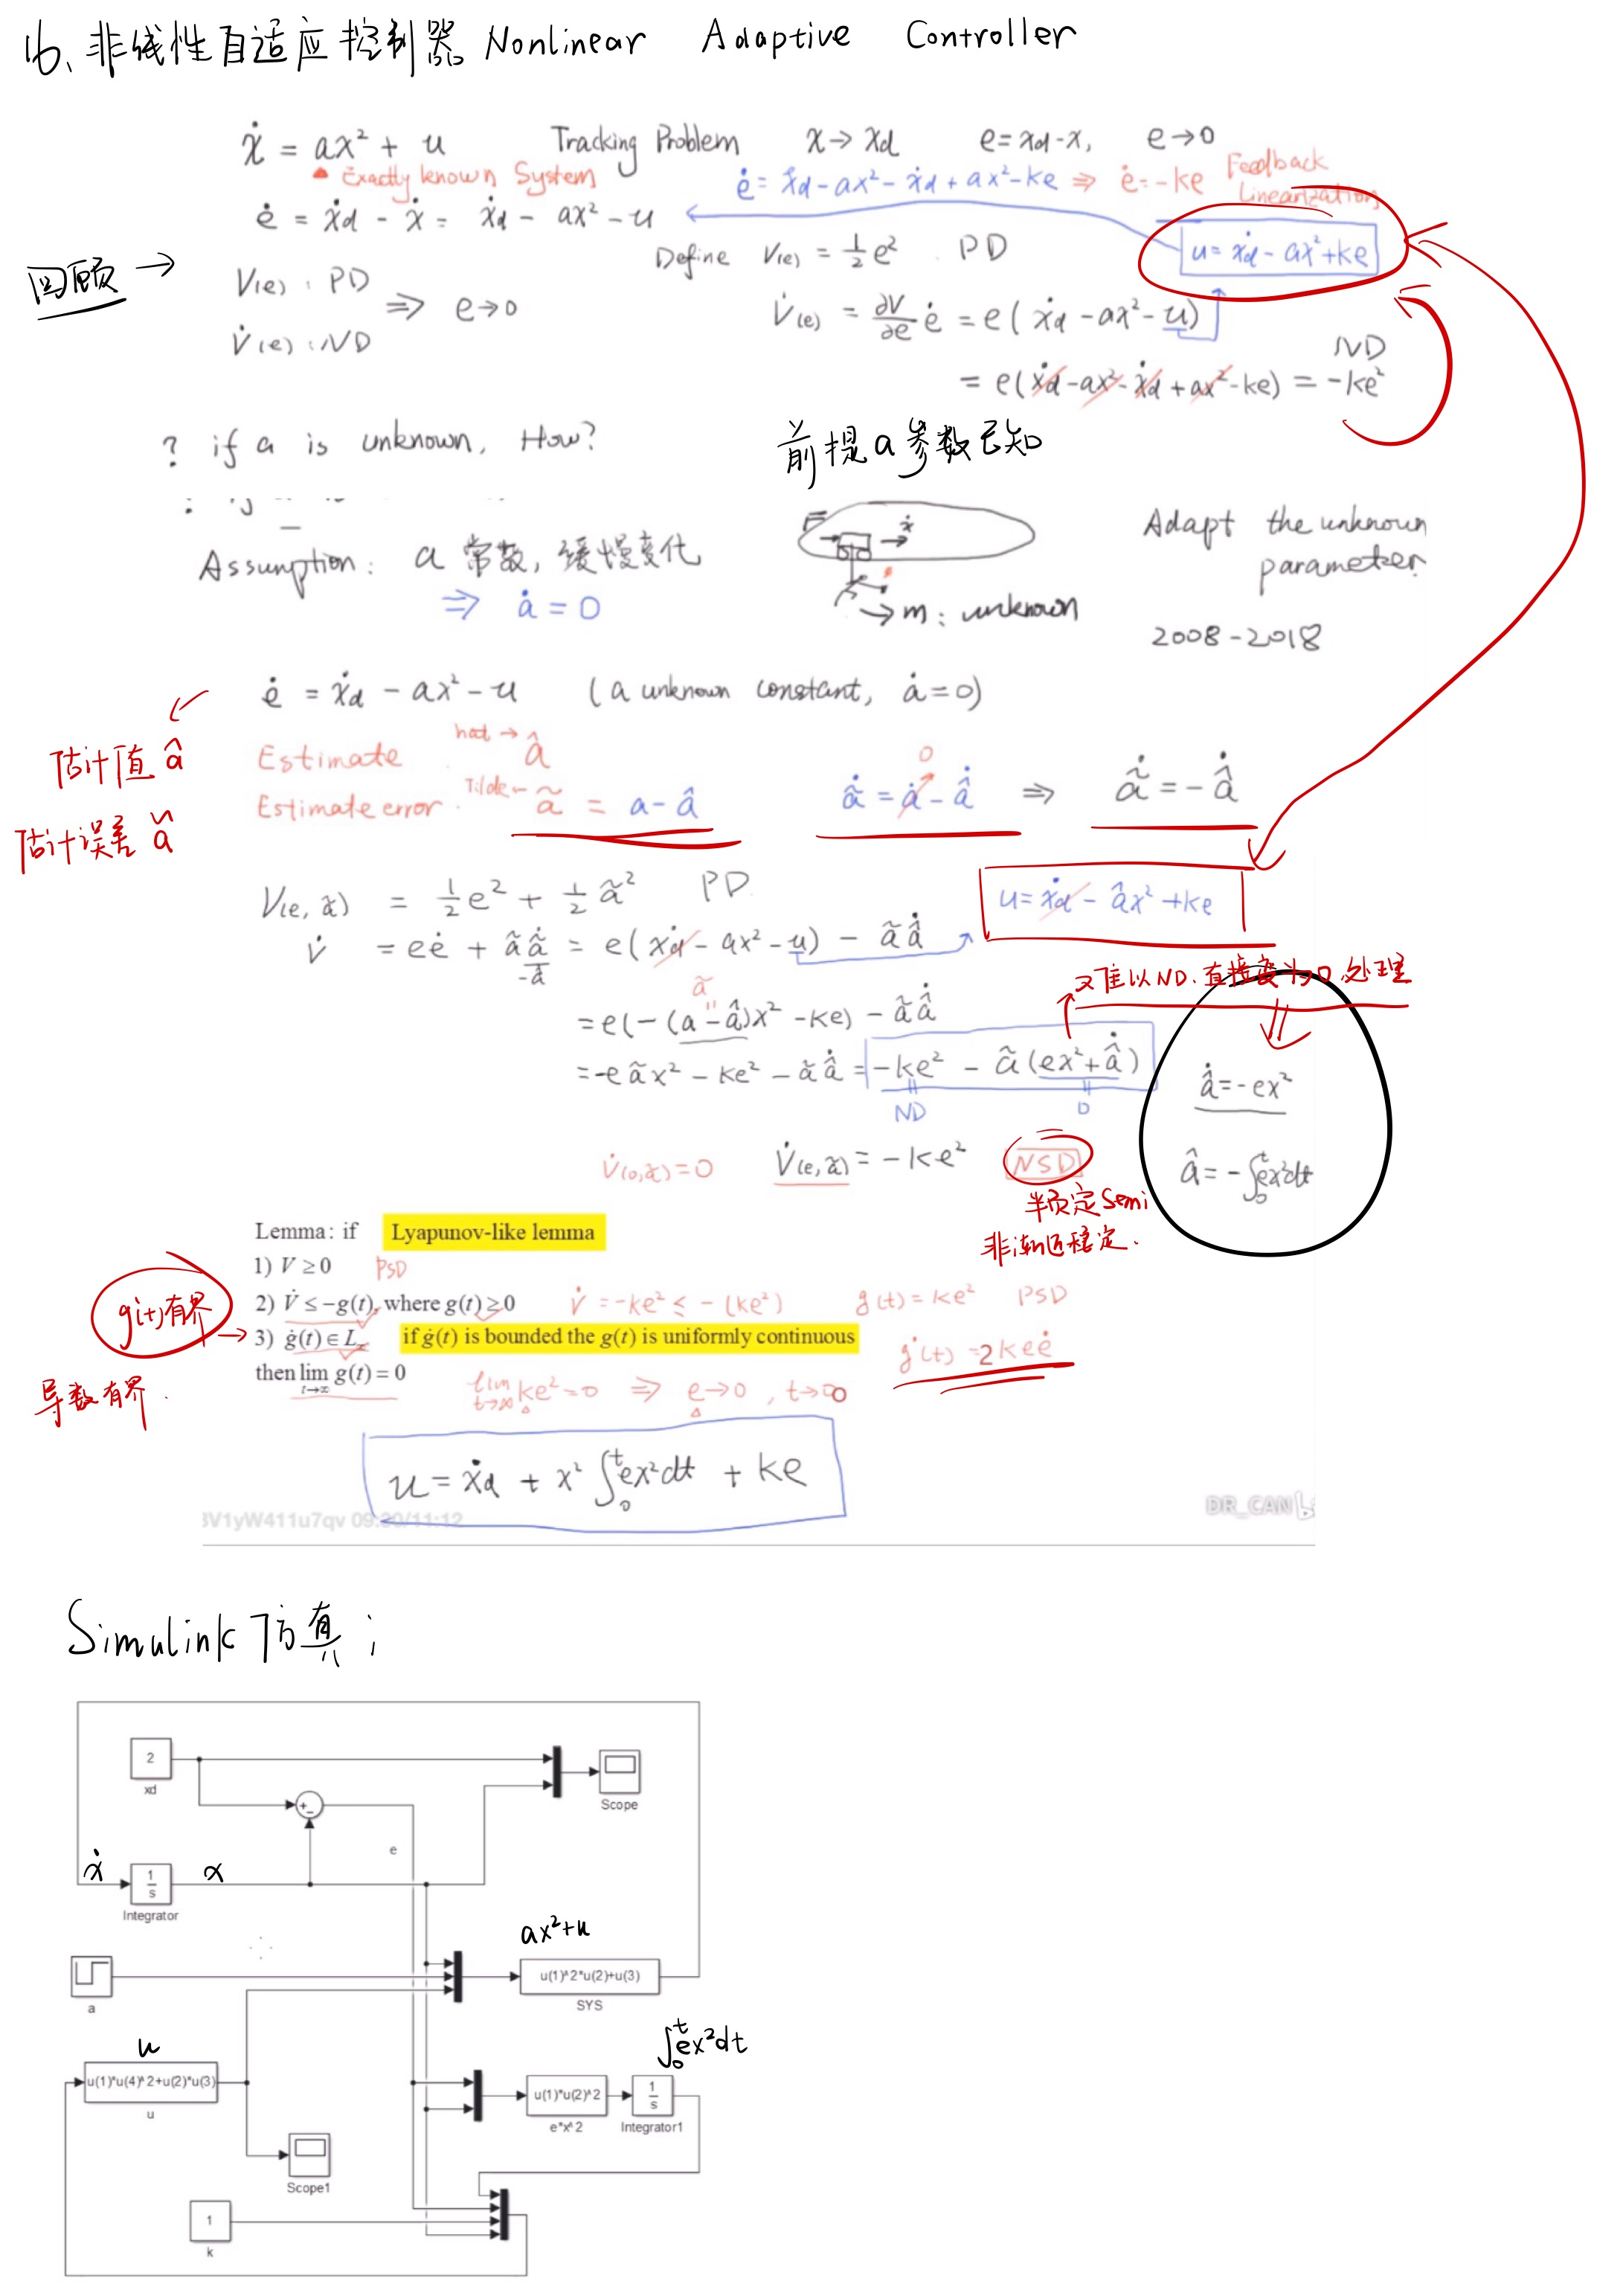 16、非线性自适应控制器 Nonlinear Adaptive Controller
ẋ = ax² + u Tracking Problem x → xd e = xd - x, e → 0
Exactly known System ė = ẋd - ax² - ẋd + ax² - ke ⇒ ė = -ke Feedback Linearization
ė = ẋd - ẋ = ẋd - ax² - u
u = ẋd - ax² + ke
回顾 →
Define V(e) = ½e² . PD
V(e) : PD
V̇(e) : ND
⇒ e → 0
V̇(e) = ∂V/∂e ė = e(ẋd - ax² - u)
= e(ẋd - ax² - ẋd + ax² - ke) = -ke² ND
? if a is unknown, How?
前提a参数已知
Assumption: a 常数, 缓慢变化
⇒ ȧ = 0
F ẋ
→ m: unknown
Adapt the unknown parameter
2008-2018
ė = ẋd - ax² - u (a unknown constant, ȧ = 0)
估计值 â
Estimate hat → â
估计误差 ã
Estimate error. Tilde ← ã = a - â
ã̇ = ȧ - â̇ ⇒ ã̇ = -â̇
0
V(e, ã) = ½e² + ½ã² PD
u = ẋd - âx² + ke
V̇ = eė + ãã̇ = e(ẋd - ax² - u) - ãâ̇
又难以ND.直接变为0处理
= e(-(a - â)x² - ke) - ãâ̇
ã
= -eãx² - ke² - ãâ̇ = -ke² - ã(ex² + â̇)
ND
0
â̇ = -ex²
â = -∫₀ᵗex²dt
V̇(0,ã) = 0 V̇(e, ã) = -ke² NSD
半负定Semi
非渐近稳定.
Lemma: if Lyapunov-like lemma
1) V ≥ 0 PSD
2) V̇ ≤ -g(t), where g(t) ≥ 0 V̇ = -ke² ≤ -(ke²) g(t) = ke² PSD
g(t)有界 →
3) ġ(t) ∈ L∞ if ġ(t) is bounded the g(t) is uniformly continuous
ġ(t) = 2keė
导数有界.
then lim t→∞ g(t) = 0 lim t→∞ ke² = 0 ⇒ e → 0, t → ∞
u = ẋd + x² ∫₀ᵗex²dt + ke
BV1yW411u7qv 09:30/11:12
DR_CAN
Simulink仿真;
2
xd
Scope
+-
e
ẋ
1/s
x
Integrator
ax²+u
a
u(1)^2*u(2)+u(3)
SYS
u
∫₀ᵗex²dt
u(1)*u(4)^2+u(2)*u(3)
u
u(1)*u(2)^2
e*x^2
1/s
Integrator1
Scope1
1
k